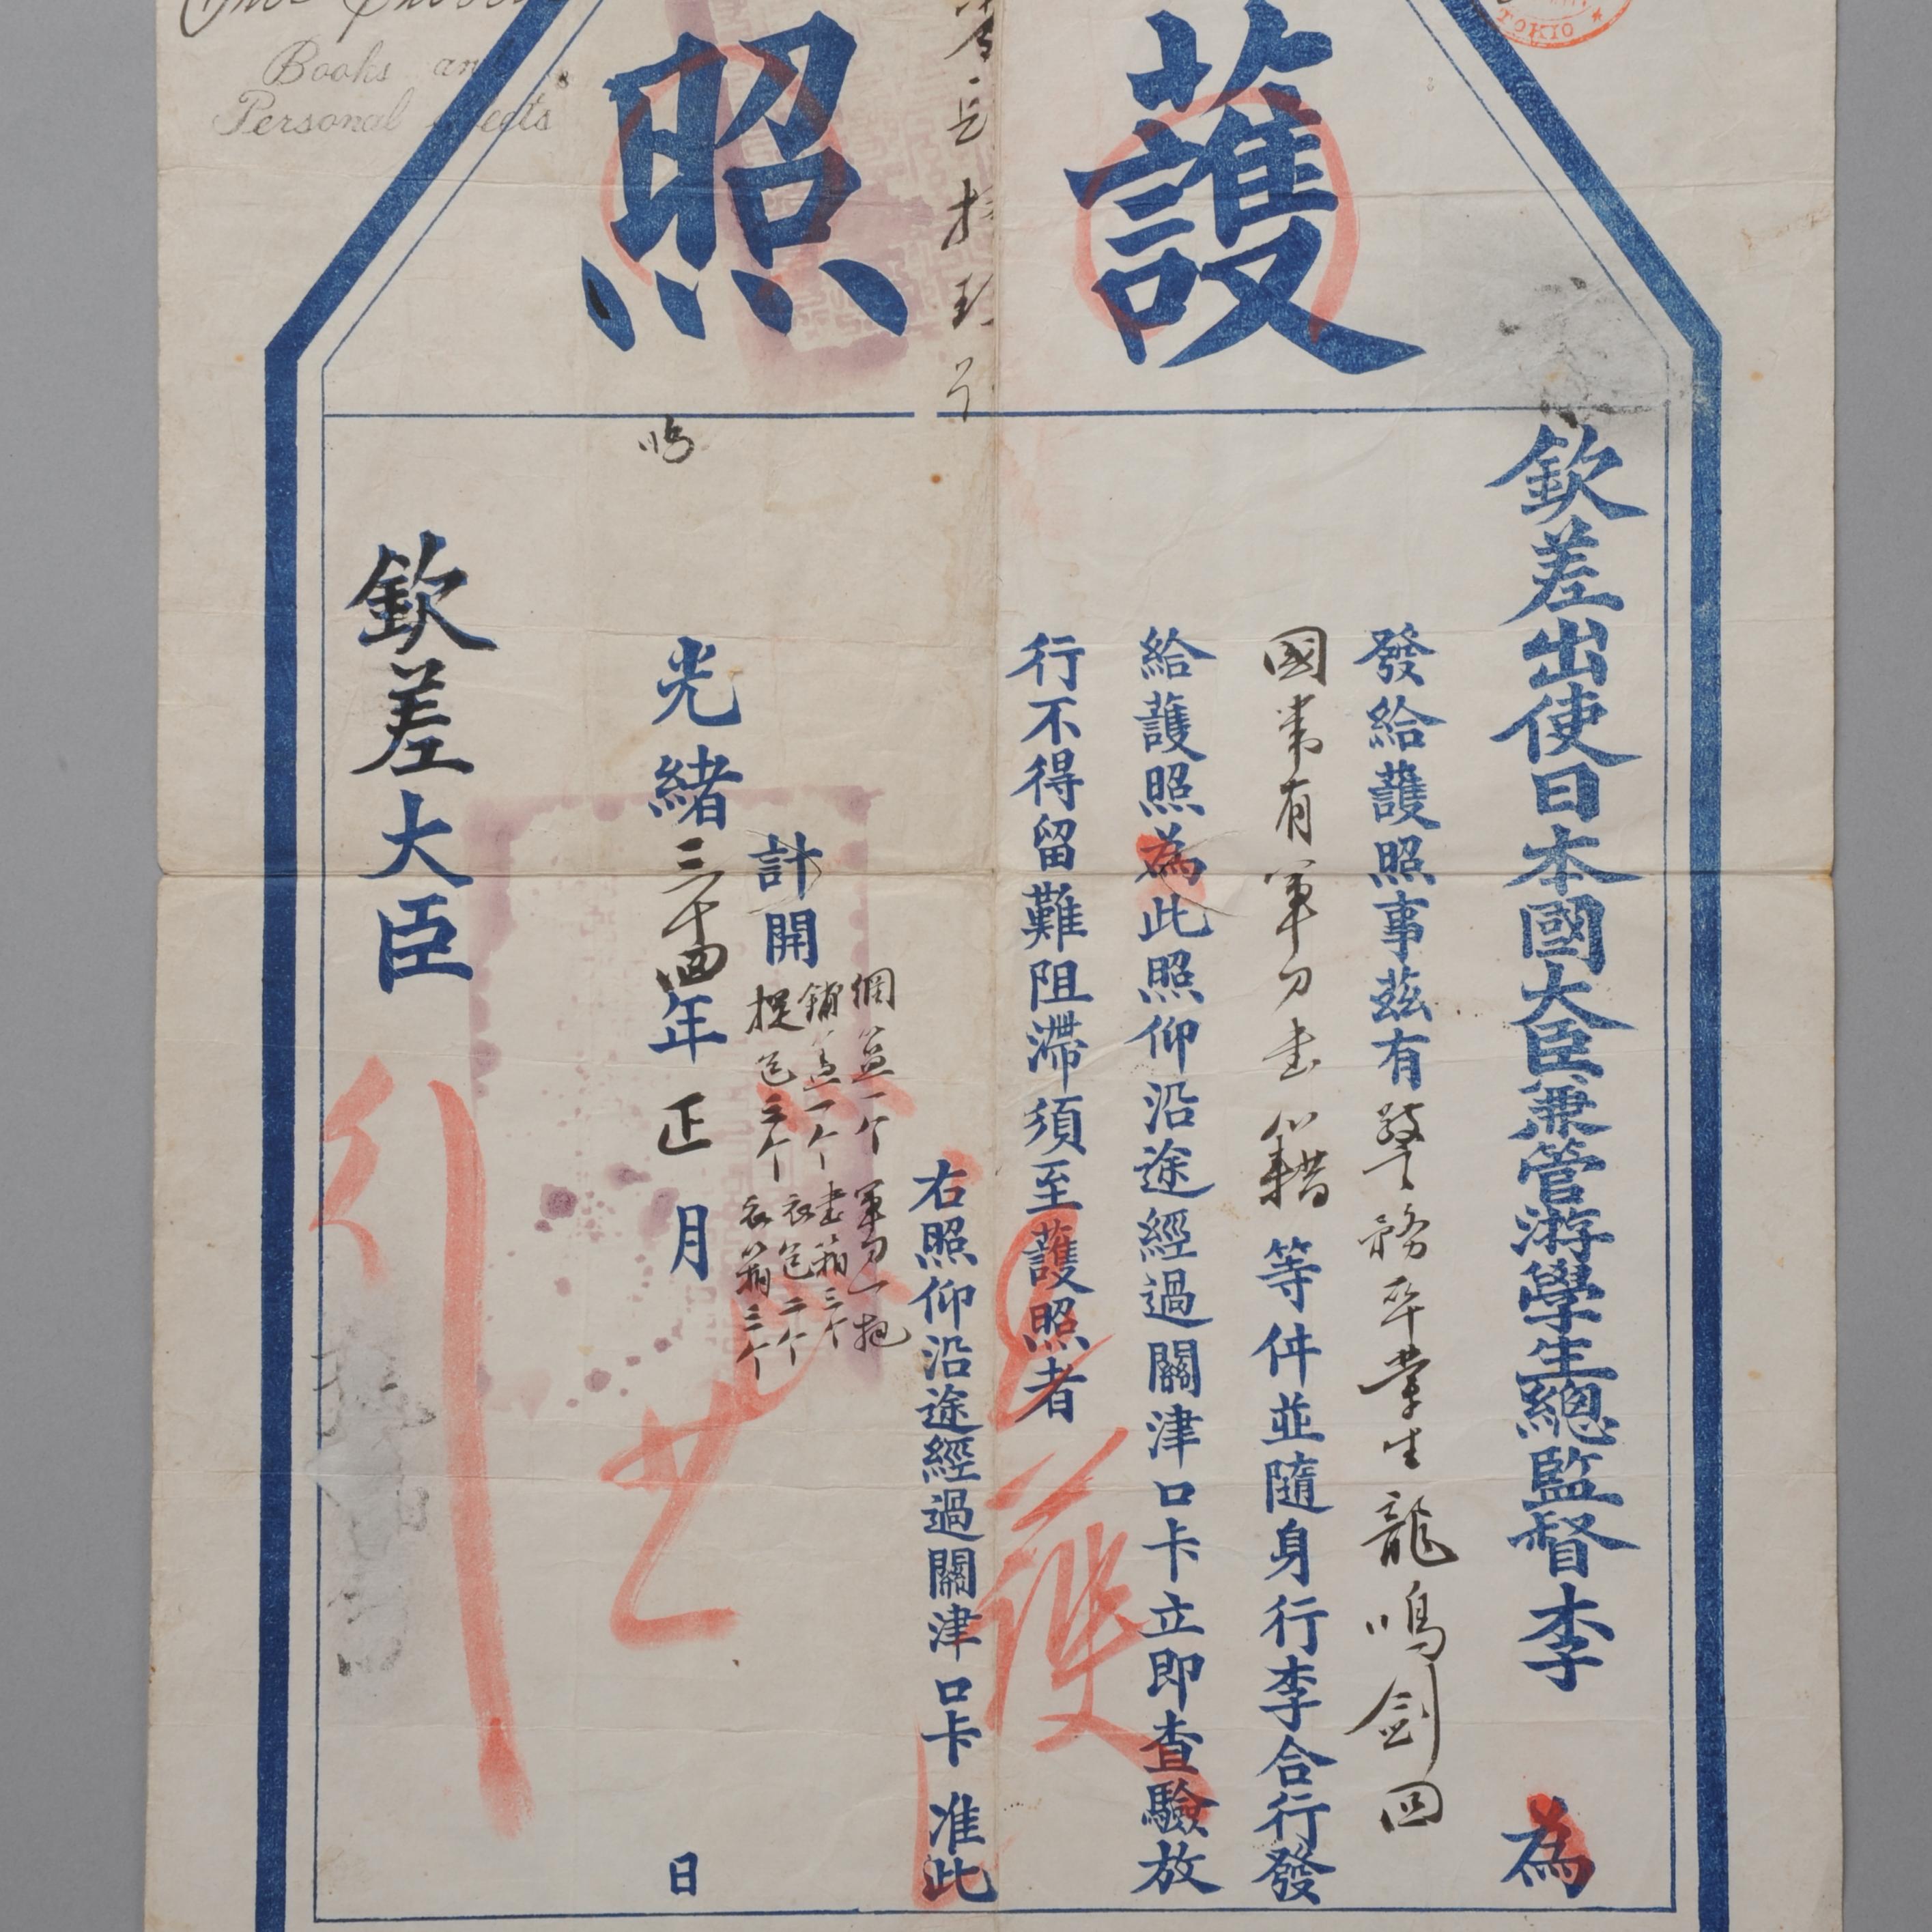 Books and
Personal effects
TOKIO
護照
欽差出使日本國大臣兼管游學生總監督李 為
發給護照事茲有警務卒業生龍鳴劍回
國帶有軍刀書籍等件並隨身行李合行發
給護照為此照仰沿途經過關津口卡立即查驗放
行不得留難阻滯須至護照者
右照仰沿途經過關津口卡 准此
計開
網籃一个 軍刀一把
鋪蓋一个 書箱三个
提包三个 衣包二个
衣箱三个
光緒三十四年正月 日
欽差大臣